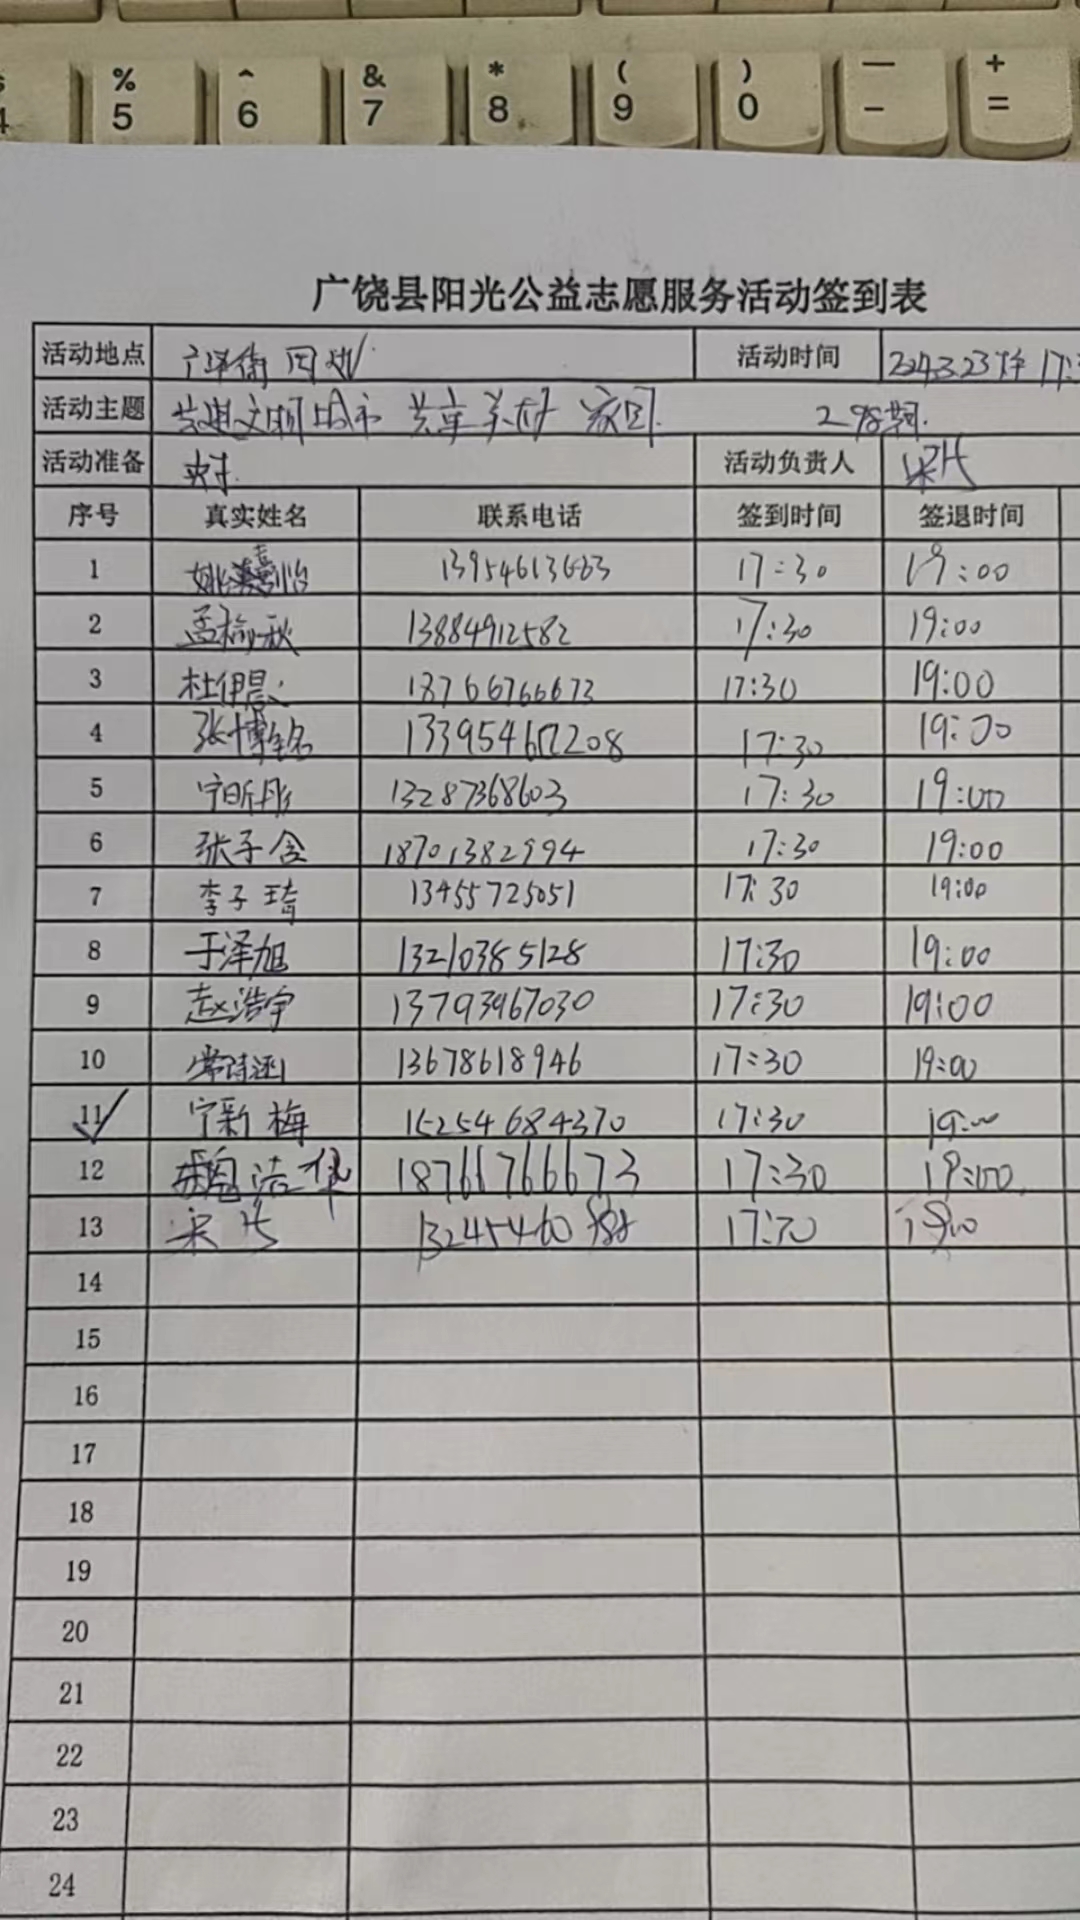 % ^ & * ( ) — +
5 6 7 8 9 0 - =
广饶县阳光公益志愿服务活动签到表
活动地点 活动时间
活动主题 共建文明城市 共享美好家园. 298期.
活动准备 活动负责人
序号 真实姓名 联系电话 签到时间 签退时间
1 13954613663 17:30 19:00
2 孟榆秋 13884912582 17:30 19:00
3 杜伊晨 18766766673 17:30 19:00
4 张博铭 17:30 19:00
5 宁昕彤 13287368603 17:30 19:00
6 张子含 18701382994 17:30 19:00
7 李子琦 13455725051 17:30 19:00
8 于泽旭 13210385128 17:30 19:00
9 赵浩宇 13793967030 17:30 19:00
10 常诗涵 13678618946 17:30 19:00
11 宁新梅 15254684370 17:30 19:00
12 魏洁 18766766673 17:30 19:00
13 17:30
14
15
16
17
18
19
20
21
22
23
24